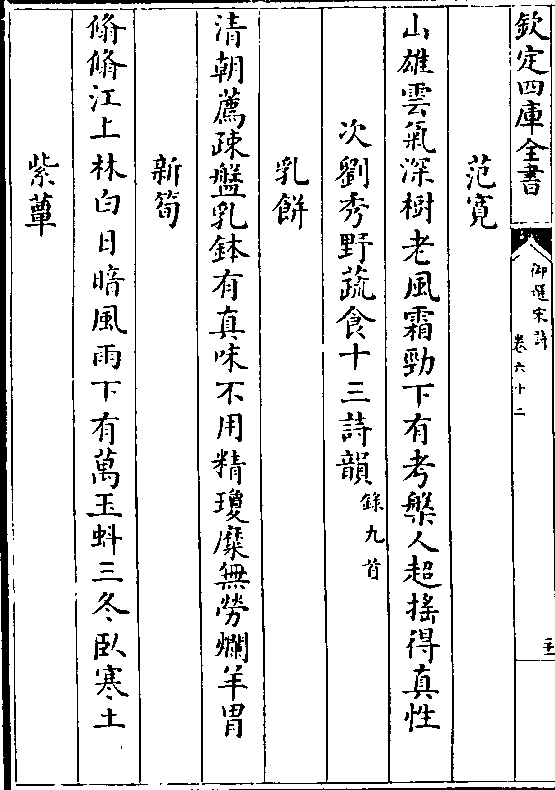 欽定四庫全書
御選宋詩
卷六十二
范寛
山雄雲氣深樹老風霜勁下有考槃人超摇得真性
次劉秀野蔬食十三詩韻録九首
乳餅
清朝薦疎盤乳鉢有真味不用精瓊糜無勞爛羊胃
新筍
脩脩江上林白日暗風雨下有萬玉蚪三冬臥寒土
紫蕈